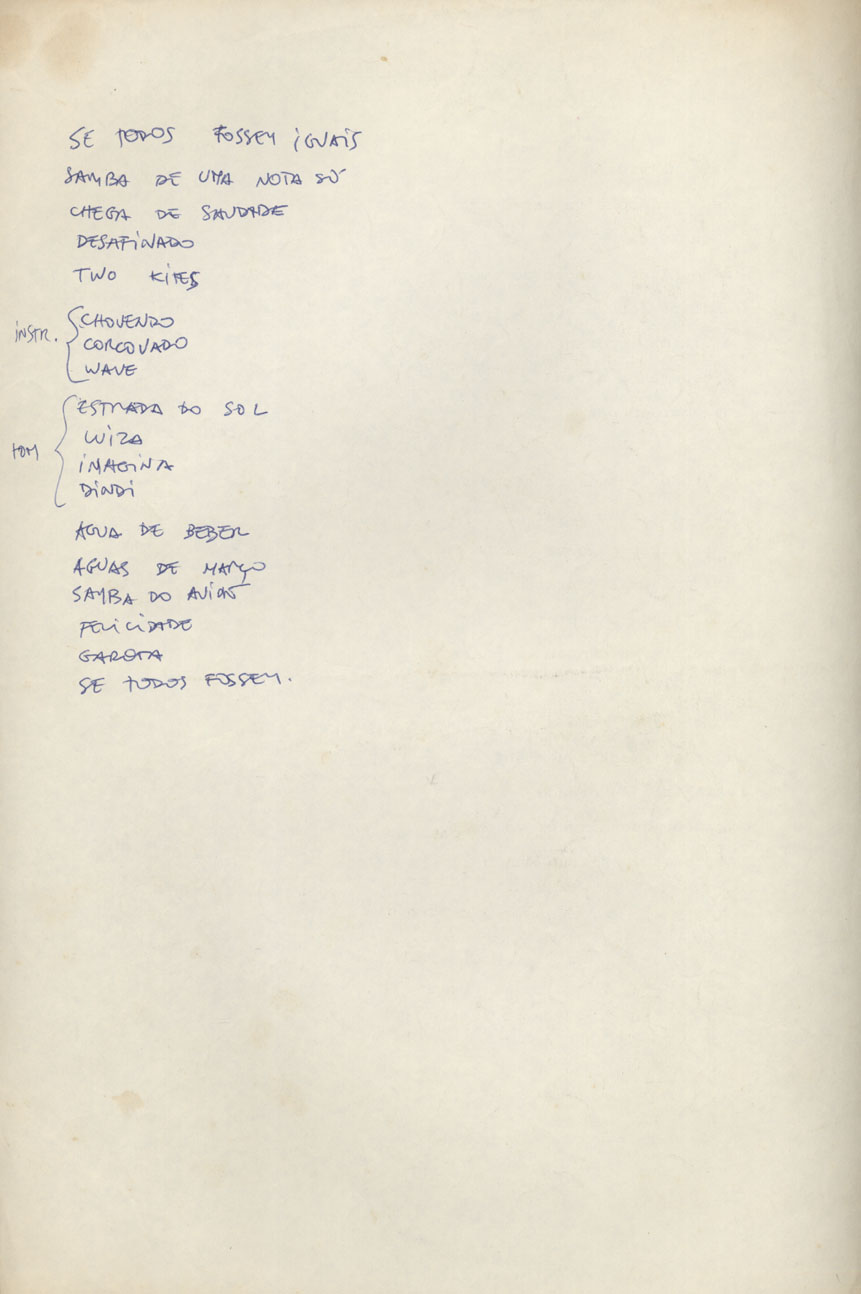 SE TODOS FOSSEM IGUAIS
SAMBA DE UMA NOTA SÓ
CHEGA DE SAUDADE
DESAFINADO
TWO KITES
INSTR.
CHOVENDO
CORCOVADO
WAVE
TOM
ESTRADA DO SOL
LUIZA
IMAGINA
DINDI
ÁGUA DE BEBER
ÁGUAS DE MARÇO
SAMBA DO AVIÃO
FELICIDADE
GAROTA
SE TODOS FOSSEM.